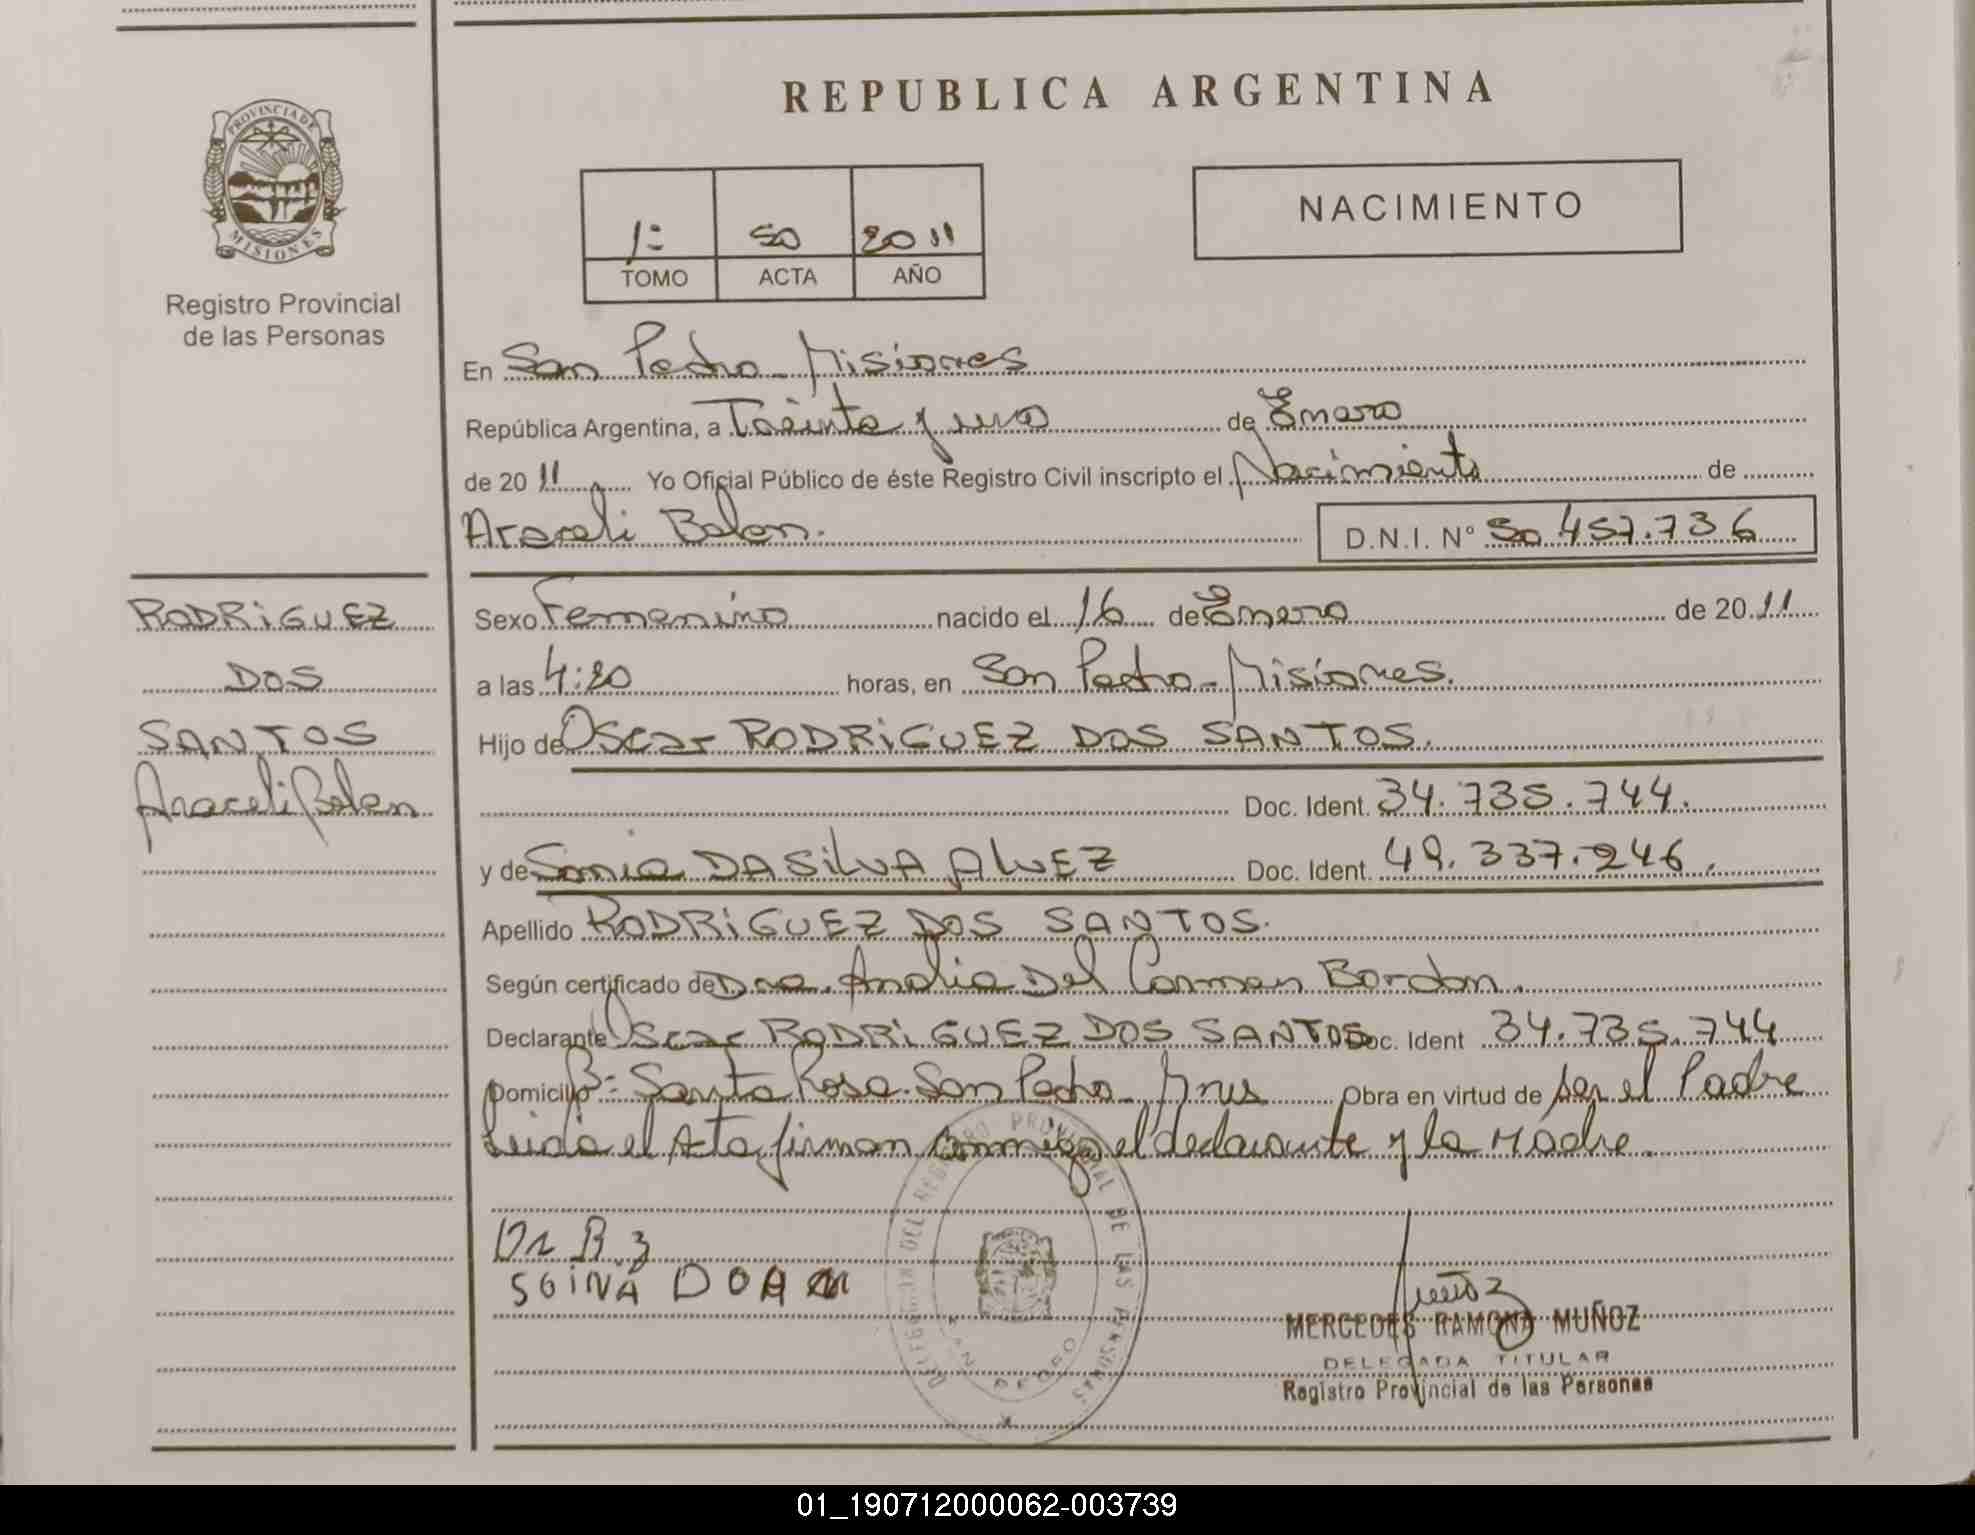 REPUBLICA ARGENTINA
PROVINCIA DE
MISIONES
Registro Provincial
de las Personas
NACIMIENTO
1º 50 2011
TOMO ACTA AÑO
En San Pedro - Misiones
República Argentina, a Treinta y uno de Enero
de 20 11 Yo Oficial Público de éste Registro Civil inscripto el Nacimiento de
Araceli Belen.
D.N.I. Nº 50.457.736
RODRIGUEZ
DOS
SANTOS
Araceli Belen
Sexo Femenino nacido el 16 de Enero de 20 11
a las 4:20 horas, en San Pedro - Misiones.
Hijo de Oscar RODRIGUEZ DOS SANTOS.
Doc. Ident. 34.735.744.
y de Sonia DA SILVA ALVEZ Doc. Ident. 49.337.246.
Apellido RODRIGUEZ DOS SANTOS.
Según certificado de Dra. Analia Del Carmen Bordon.
Declarante Oscar RODRIGUEZ DOS SANTOS Doc. Ident 34.735.744
Domicilio Bº Santa Rosa - San Pedro - Mnes Obra en virtud de ser el Padre
Leida el Acta firman conmigo el declarante y la Madre.
DELEGACIÓN DEL REGISTRO PROVINCIAL DE LAS PERSONAS
SAN PEDRO
MERCEDES RAMONA MUÑOZ
DELEGADA TITULAR
Registro Provincial de las Personas
01_190712000062-003739